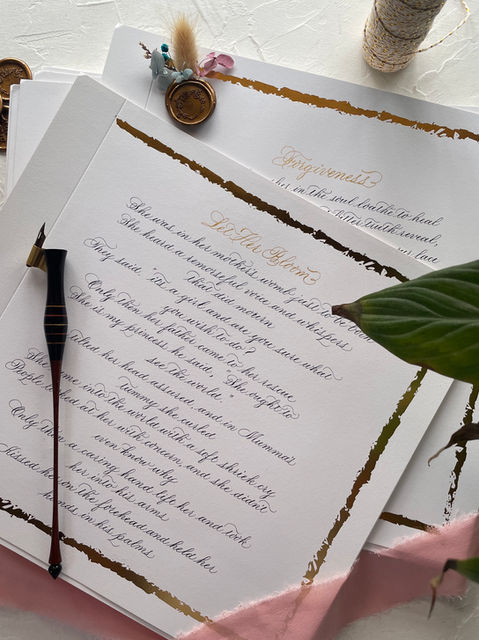 Forgiveness
her in the soul loathe to heal
bitter truth reveal,
Let Her Bloom
She was in her mother's womb just to be
She heard a remorseful voice and whispers
That did mourn
They said "its a girl and are you sure what
you wish to do?
Only then her father came to her rescue
She is my princess he said, "She ought to
see the world."
tilted her head assured and in Mumma's
tummy she curled
She came into the world with a soft shriek cry
People looked at her with concern, and she didn't
even know why
Only then a caring hand left her and took
her into his arms
Kissed her on the forehead and held her
hands in his palms